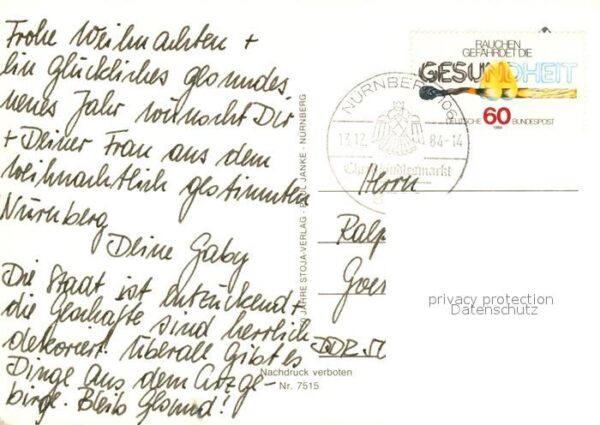 Frohe Weihnachten +
ein glückliches gesundes
neues Jahr wünscht Dir
+ Deiner Frau aus dem
weihnachtlich gestimmten
Nürnberg
Deine Gaby
Die Stadt ist entzückend +
die Geschäfte sind herrlich
dekoriert. Überall gibt es
Dinge aus dem Erzge-
birge. Bleib Gesund!
JAHRE STOJA-VERLAG - PAUL JANKE - NÜRNBERG
Nachdruck verboten
Nr. 7515
RAUCHEN
GEFÄHRDET DIE
GESUNDHEIT
DEUTSCHE 60 BUNDESPOST
1984
NÜRNBERG 106
13.12. 84-14
Christkindlesmarkt
Herrn
Ralp
Goes
DDR
privacy protection
Datenschutz